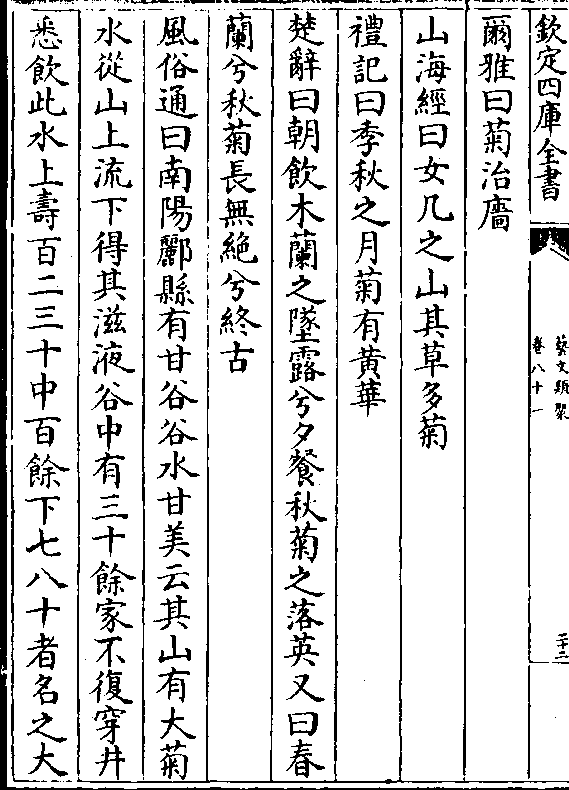 欽定四庫全書
藝文類聚
卷八十一
二十二
爾雅曰菊治廧
山海經曰女几之山其草多菊
禮記曰季秋之月菊有黄華
楚辭曰朝飲木蘭之墜露兮夕餐秋菊之落英又曰春
蘭兮秋菊長無絶兮終古
風俗通曰南陽酈縣有甘谷谷水甘美云其山有大菊
水從山上流下得其滋液谷中有三十餘家不復穿井
悉飲此水上壽百二三十中百餘下七八十者名之大